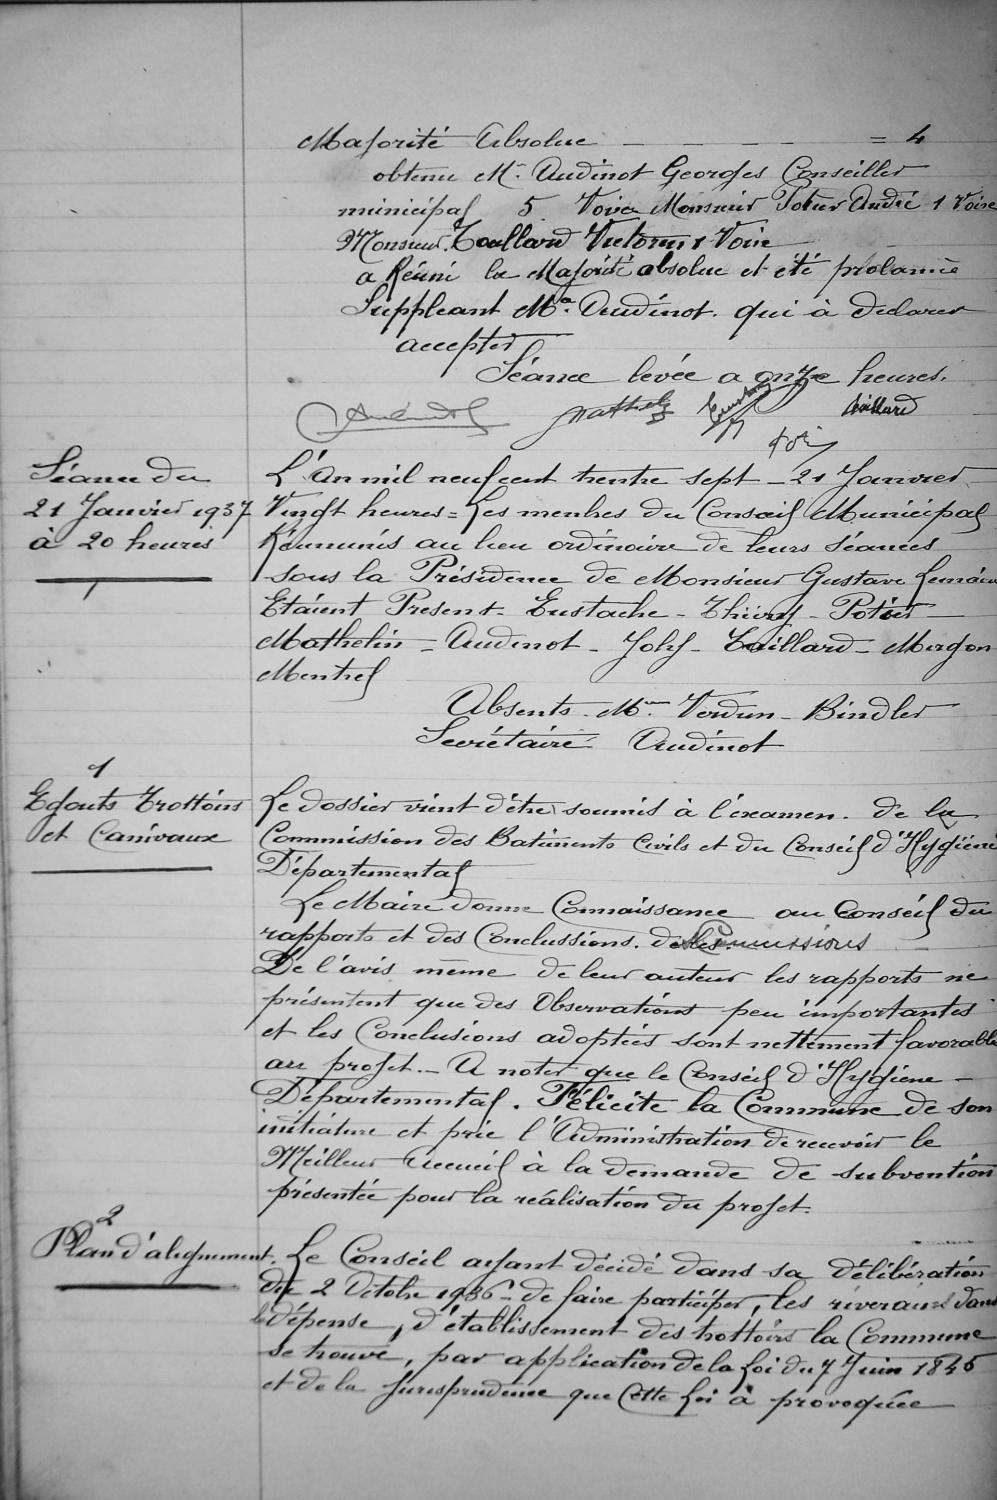 Majorité Absolue - - - - = 4
obtenu Mr. Audinot Georges Conseiller
municipal 5. Voix Monsieur Potier André 1 Voix
Monsieur. Taillard Victorin 1 Voix
a Réuni la Majorité absolue et été prolamée
Suppleant Mr. Audinot. qui à Declarer
accepter
Séance levée a onze heures.
Taillard
Séance du
21 Janvier 1937
à 20 heures
L'An mil neuf cent trente sept - 21 Janvier
Vingt heures = Les membres du Conseil Municipal
Réunnis au lieu ordinaire de leurs séances
sous la Présidence de Monsieur Gustave
Etaient Present - Eustache - Thiéry - Potier
Mathelin - Audinot - Joly - Taillard - Margon
Mentrel
Absents - Mrs. Verdun - Bindler
Secrétaire Audinot
1
Egouts Trottoirs
et Canivaux
Le dossier vient d'être soumis à l'examen. de la
Commission des Batiments Civils et du Conseil d'Hygiéne
Départemental
Le Maire donne Connaissance au Conseil du
rapports et des Conclussions. de les Commissions
De l'avis même de leur auteur les rapports ne
présentent que des Observations peu importantes
et les Conclusions adoptées sont nettement favorable
au projet. - A noter que le Conseil d'Hygiene -
Départemental. Félicite la Commune de son
initiative et prie l'Administration de recevoir le
Meilleur Accueil à la demande de subvention
présentée pour la réalisation du projet.
2
Plan d'alignement.
Le Conseil ayant décidé dans sa délibération
du 2 Octobre 1936 - de faire participer, les riverains dans
la dépense, d'établissement des trottoirs la Commune
se trouve, par application de la Loi du 7 Juin 1845
et de la Jurisprudence que Cette Loi à provoquée